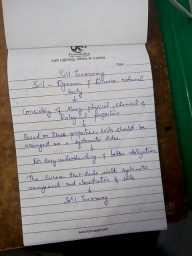 Soil Surveying
Soil - Dynamic & Diverse natural
body
Consisting of many physical, chemical &
Biology properties
Based on these properties soils should be
arranged in a systematic order
For easy understanding & better
The Science that deals with systematic
arrangement and classification of soils
Soil Surveying